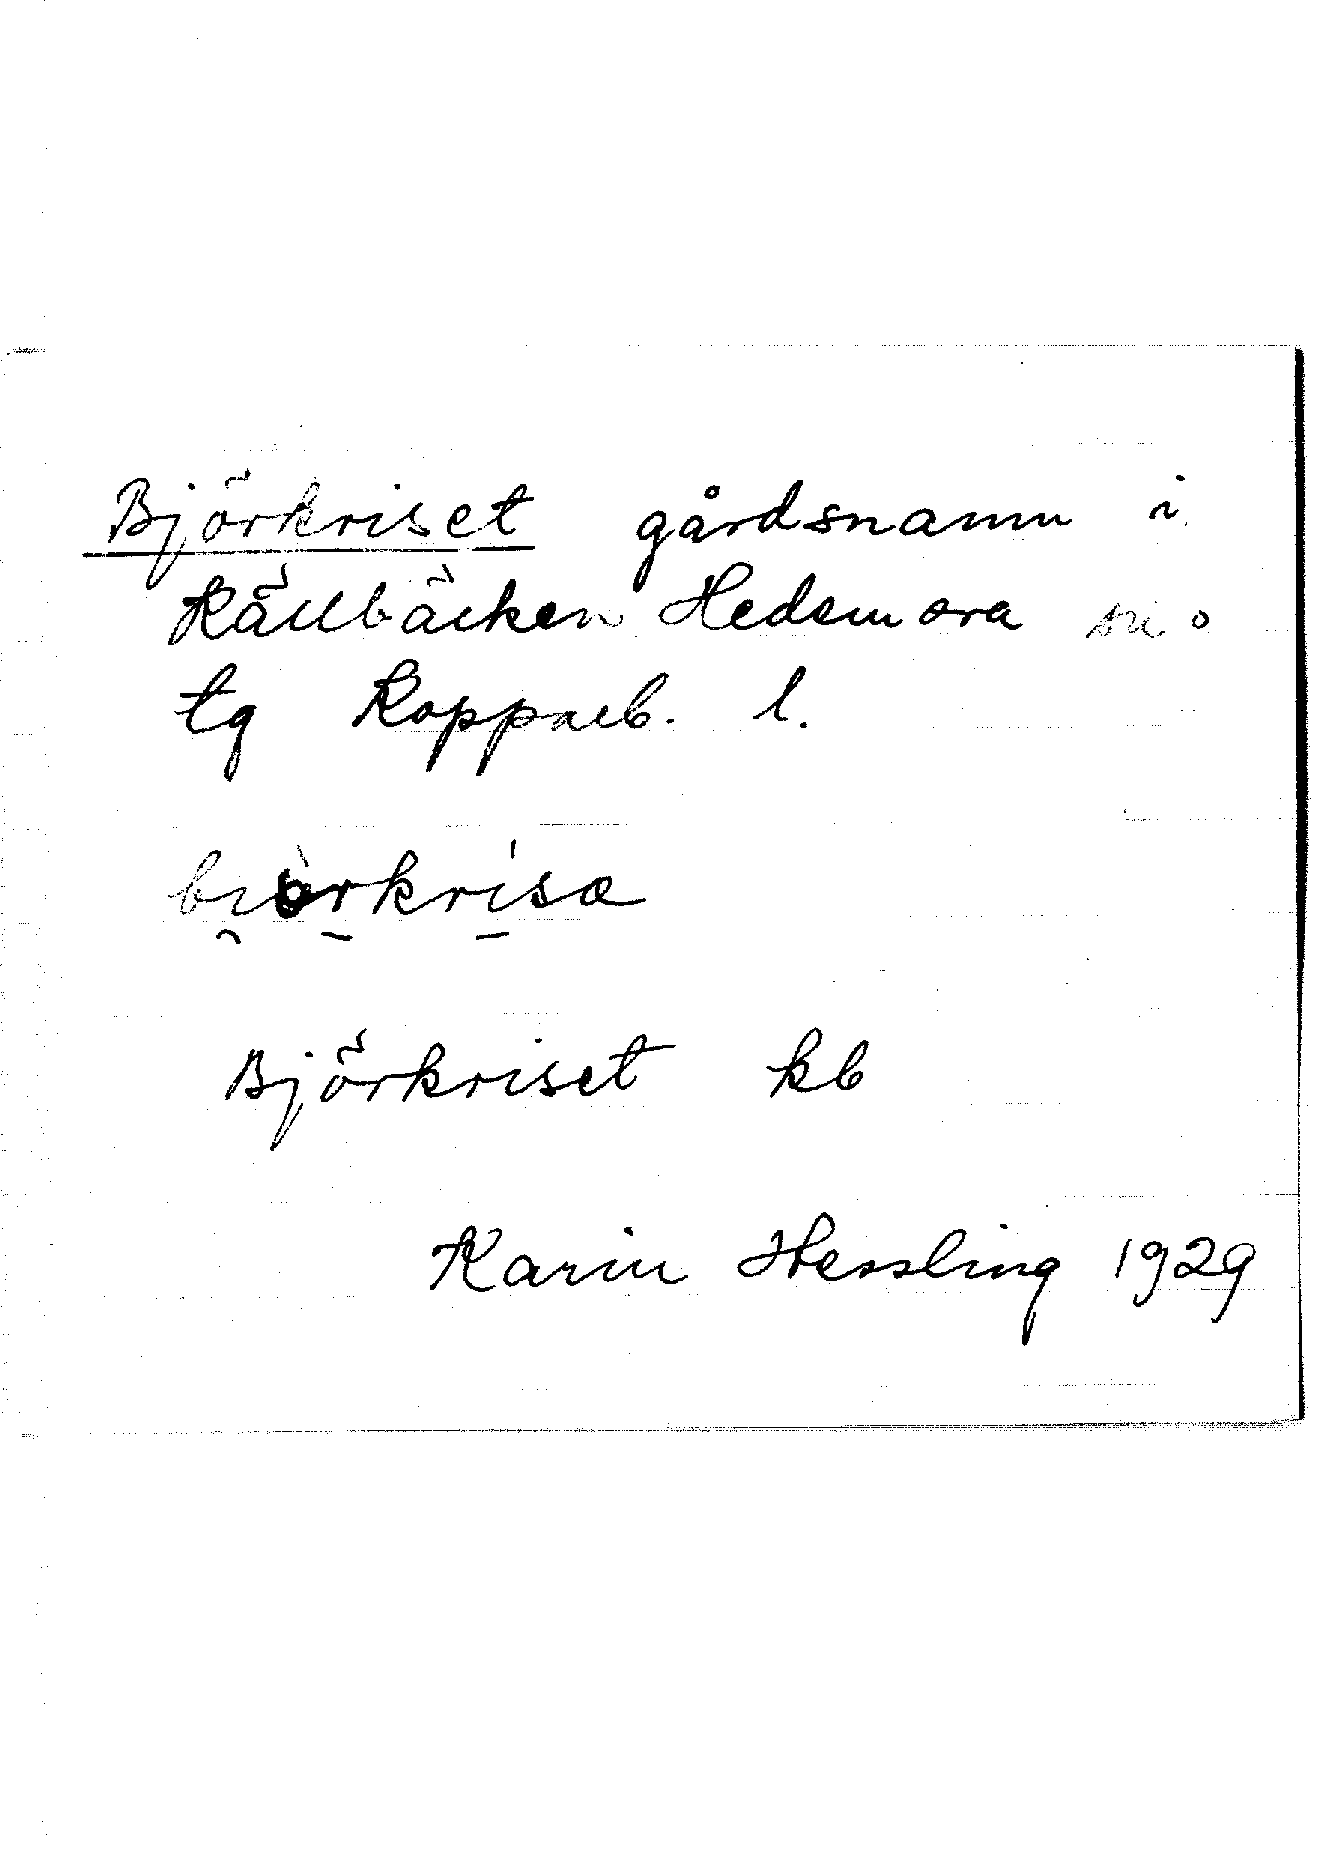 Björkriset gårdsnamn i
Källbäcken Hedemora sn o
tg Kopparb. l.
bi̯ò̱rkrísa
Björkriset kb
Karin Hessling 1929